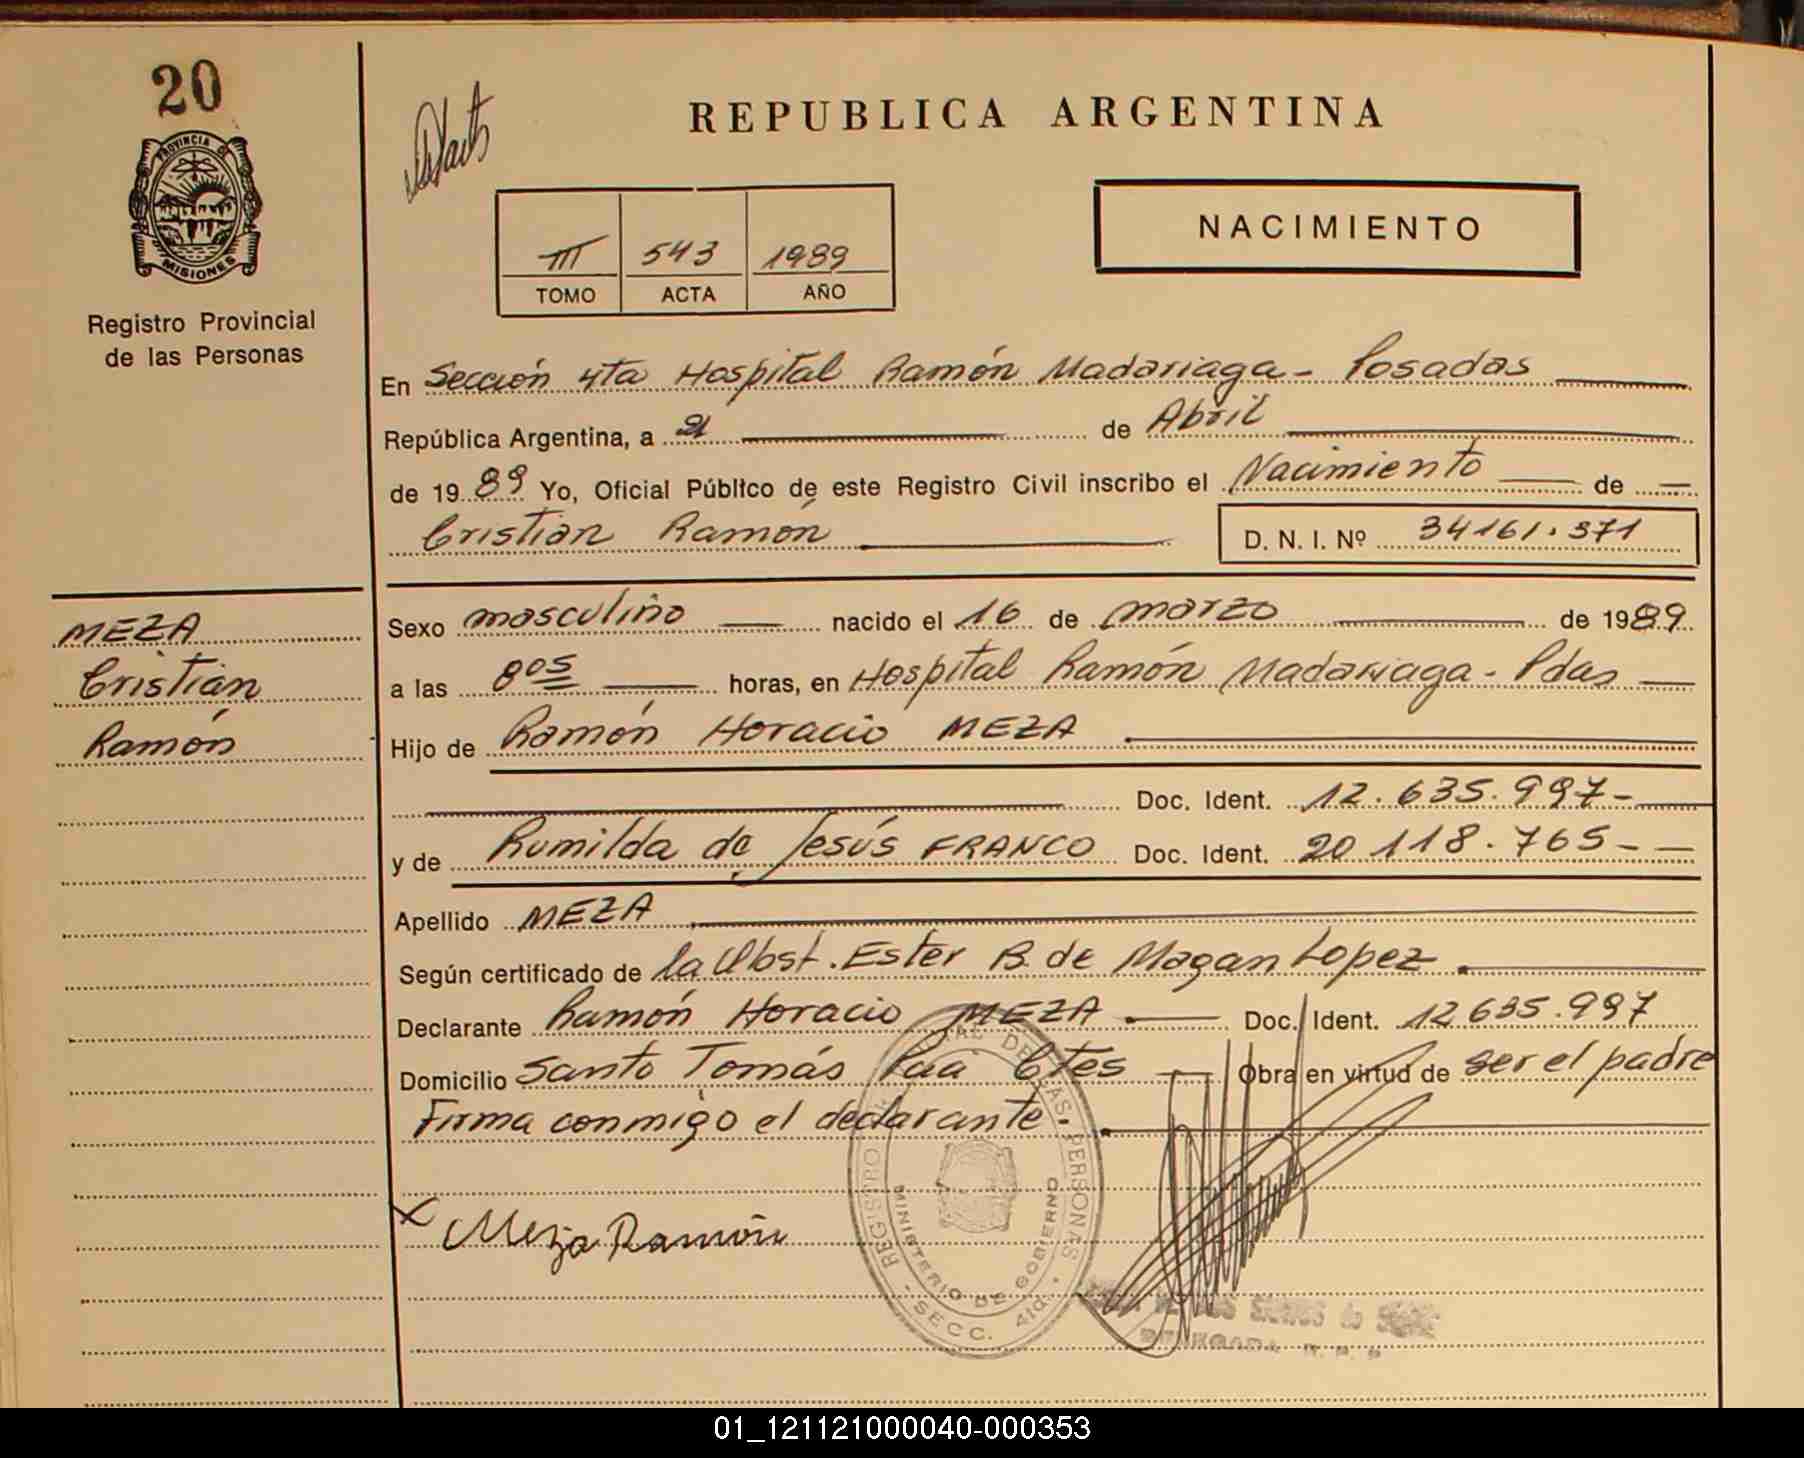 20
PROVINCIA DE
MISIONES
Registro Provincial
de las Personas
REPUBLICA ARGENTINA
NACIMIENTO
III 543 1989
TOMO ACTA AÑO
En Sección 4ta Hospital Ramón Madariaga - Posadas
República Argentina, a 21 de Abril
de 1989 Yo, Oficial Público de este Registro Civil inscribo el Nacimiento de
Cristian Ramón D. N. I. Nº 34161.371
MEZA
Cristian
Ramón
Sexo masculino nacido el 16 de marzo de 1989
a las 8 05 horas, en Hospital Ramón Madariaga - Pdas
Hijo de Ramón Horacio MEZA
Doc. Ident. 12.635.997-
y de Rumilda de Jesús FRANCO Doc. Ident. 20.118.765-
Apellido MEZA
Según certificado de la Obst. Ester B. de Magan Lopez
Declarante Ramón Horacio MEZA Doc. Ident. 12635.997
Domicilio Santo Tomás Pcia Ctes Obra en virtud de ser el padre
Firma conmigo el declarante.
x Meza Ramón
REGISTRO DE LAS PERSONAS
MINISTERIO DE GOBIERNO
SECC. 4ta.
01_121121000040-000353